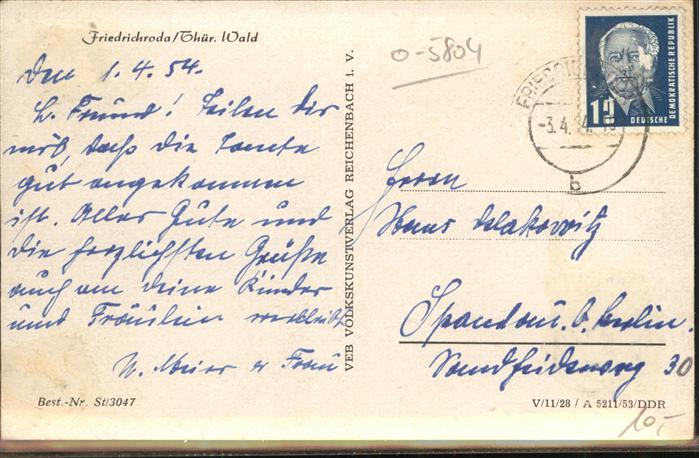 Friedrichroda/Thür. Wald
o-5804
Den 1.4.54.
L. Freund! Teilen dir
mit, daß die Tante
gut angekommen
ist. Alles Gute und
die herzlichsten Grüße
auch an deine Kinder
und Fräulein verbleibt
U. Meier u Frau
Best.-Nr. St/3047
VEB VOLKSKUNSTVERLAG REICHENBACH i. V.
DEUTSCHE DEMOKRATISCHE REPUBLIK
12
-3.4.54
b
Herrn
Hans
Spandau b. Berlin.
30
V/11/28 / A 5211/53/DDR
10,-